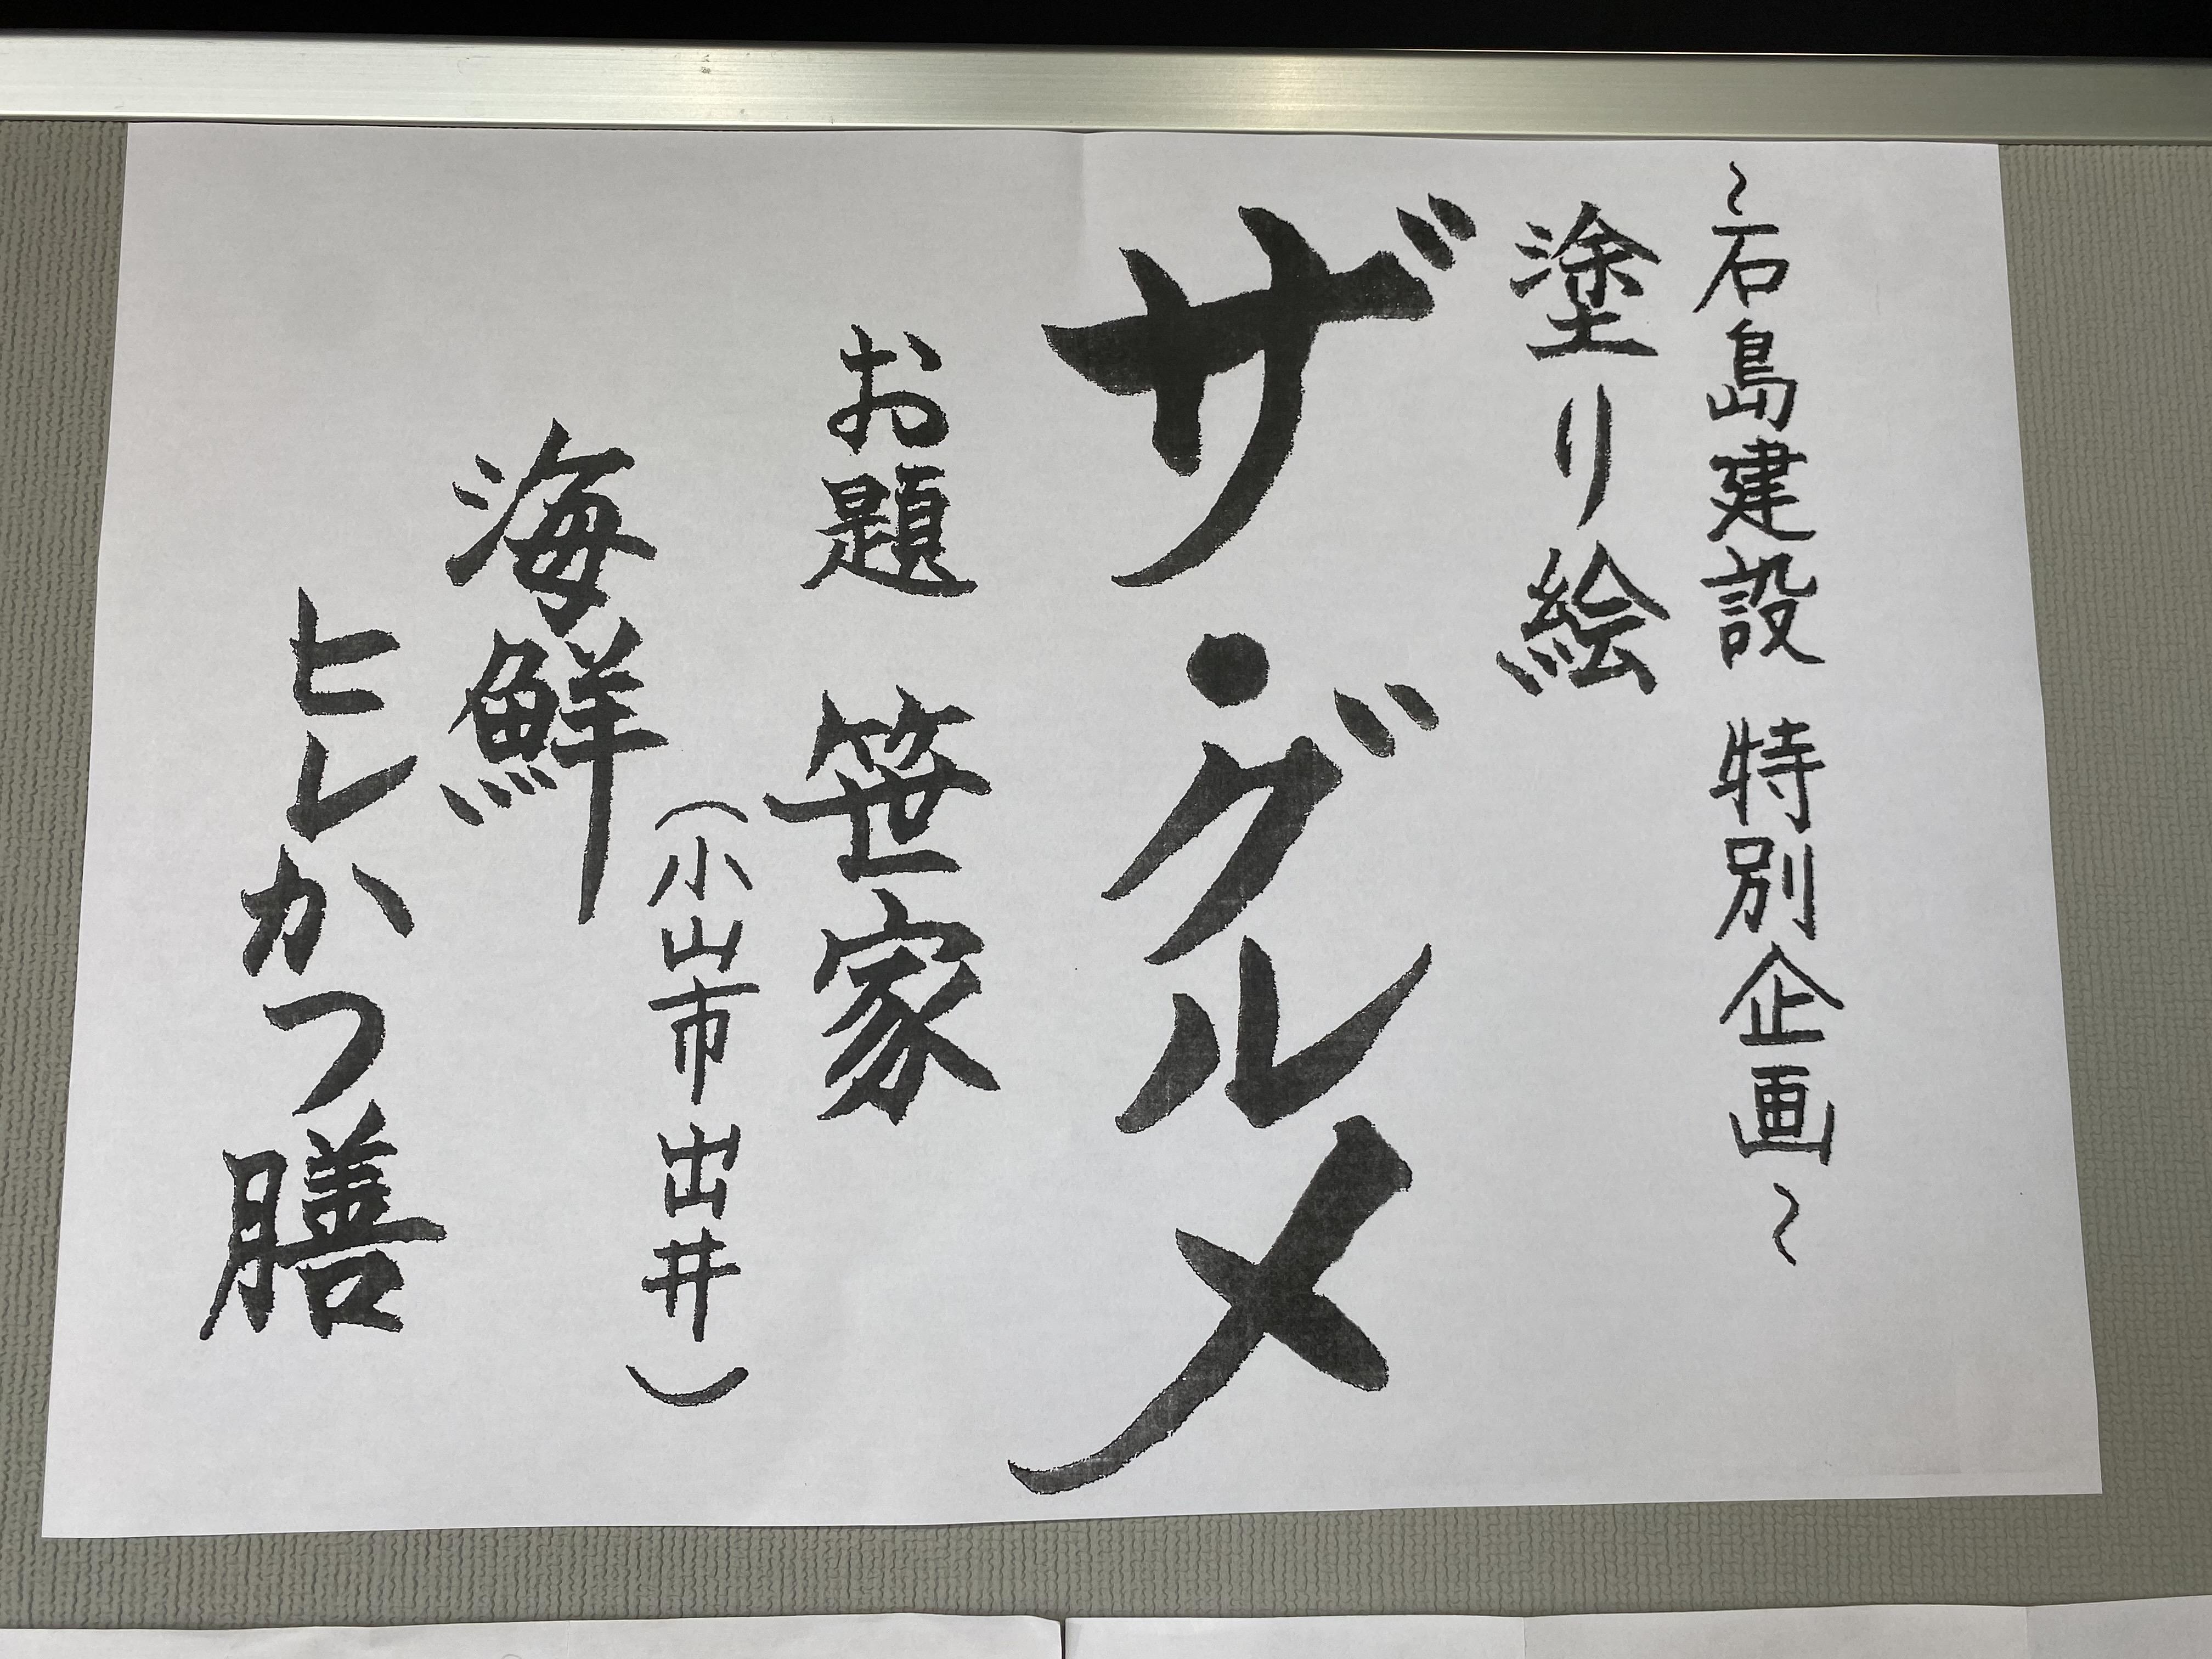 ～石島建設 特別企画～
塗り絵
ザ・グルメ
お題 笹家
（小山市出井）
海鮮
ヒレかつ膳